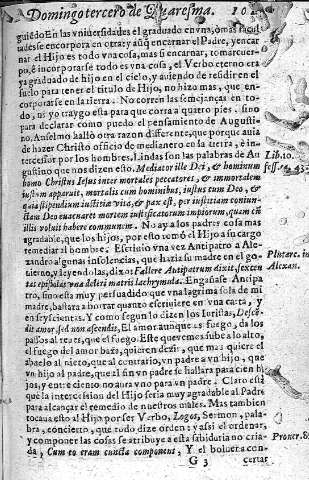 Domingo tercero de Quaresma. 10
guiēdo En las vniuersidades el graduado en vna, ò mas facul
tades se encorpora en otra: y aũq̃ encarnar el Padre, y encar
nar el Hijo es todo vna cosa, mas si encarnar, tomar cuer-
po, è incorporarse todo es vna cosa, el Verbo eterno era
ya graduado de hijo en el cielo, y auiendo de residir en el
suelo para tener el titulo de Hijo, no hizo mas, que en-
corporarse en la tierra. No corren las semejanças en to-
do, ni yo traygo esta para que corra a quatro pies, sino
para declarar como puedo el pensamiento de Augusti-
no. Anselmo hallò otra razon differente, que porque auia
de hazer Christo oficio de medianero en la tierra, è in-
tercessor por los hombres. Lindas son las palabras de Au-
gustino que nos dizen esto. Mediator ille Dei, & hominum
homo Christus Iesus inter mortales peccatores, & immortalem
iustum apparuit, mortalis cum hominibus, iustus cum Deo, &
quia stipendium iustitiæ vita, & pax est, per iustitiam coniun-
ctam Deo euacuaret mortem iustificatorum impiorum, quam cũ
illis voluit habere communem. No ay a los padres cosa mas
agradable, que los hijos, por esto tomò el Hijo a su cargo
remediar al hombre. Escriuio vna vez Antipatro a Ale-
xandro algunas insolencias, que hazia su madre en el go-
uierno, y leyendolas, dixo: Fallere Antipatrum dixit, sexcen
tas epistolas vna deleri matris lachrymula. Engañase Antipa
tro, sino està muy persuadido que vna lagrima sola de mi
madre, bastara a borrar quanto escriuiere en vna carta, y
en seyscientas. Y como segun lo dizen los Iuristas, Descē-
dit amor, sed non ascendit, El amor aunque es fuego, da los
passos al reues, que el fuego. Este que vemos sube a lo alto,
el fuego del amor baxo, quieren dezir, que mas quiere el
abuelo al nieto, que al contrario, vn padre a vn hijo, que
vn hijo al padre, que al fin vn padre se hallarà para cien hi
jos, y entre ciento no aura vno para vn padre. Claro està
que la intercession del Hijo seria muy agradable al Padre
para alcançar el remedio de nuestros males. Mas tambien
tocaua esto al Hijo por ser Verbo, Logos, Sermon, pala-
bra, concierto, que todo dize orden: y assi el ordenar,
y componer las cosas se atribuye a esta sabiduria no cria-
da, Cum eo eram cuncta componens, Y el boluera con-
G 3 certar
Lib. 10.
fess. 43.
Plutarc. in
Alexan.
Prouer. 8.